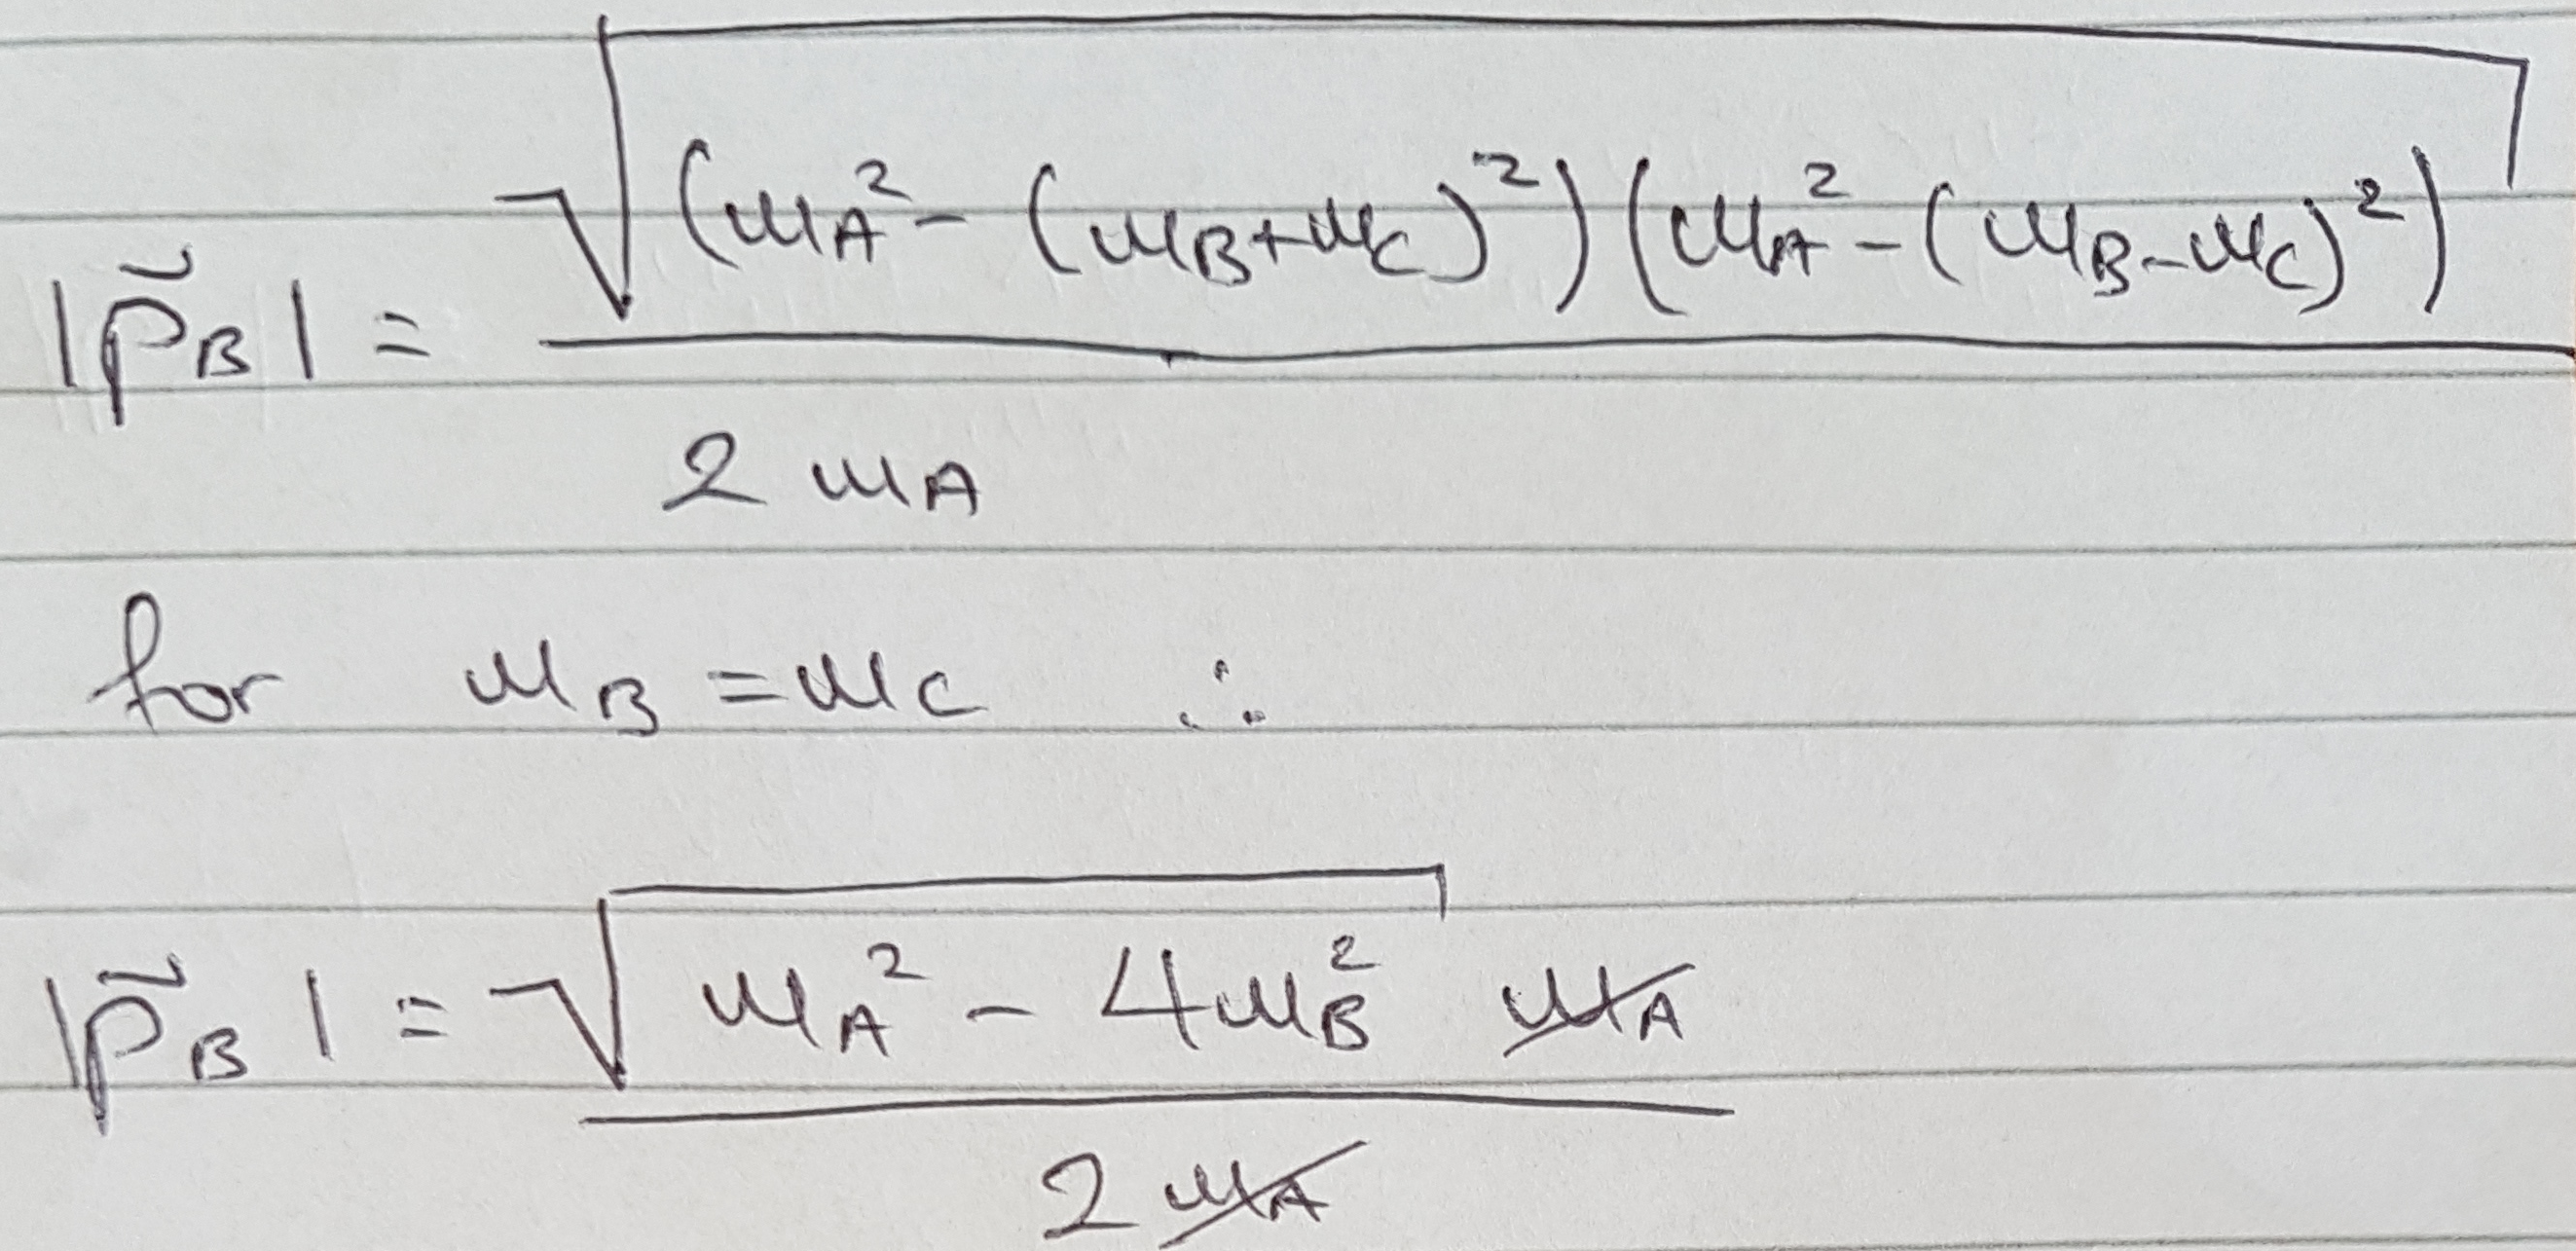 |p⃗_B| = √((m_A² - (m_B + m_C)²)(m_A² - (m_B - m_C)²)) / 2 m_A
for m_B = m_C ∴
|p⃗_B| = √(m_A² - 4m_B²) m̸_A̸ / 2 m̸_A̸